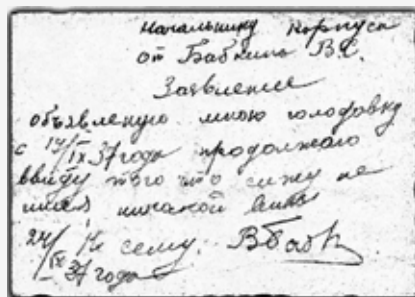 Начальнику Корпуса
от Бабкина В.С.
Заявление
Объявленую мною голодовку
с 14/IX 37 года продолжаю
ввиду того что сижу не
имея никакой вины
24/IX 37 года
К сему: ВБабк